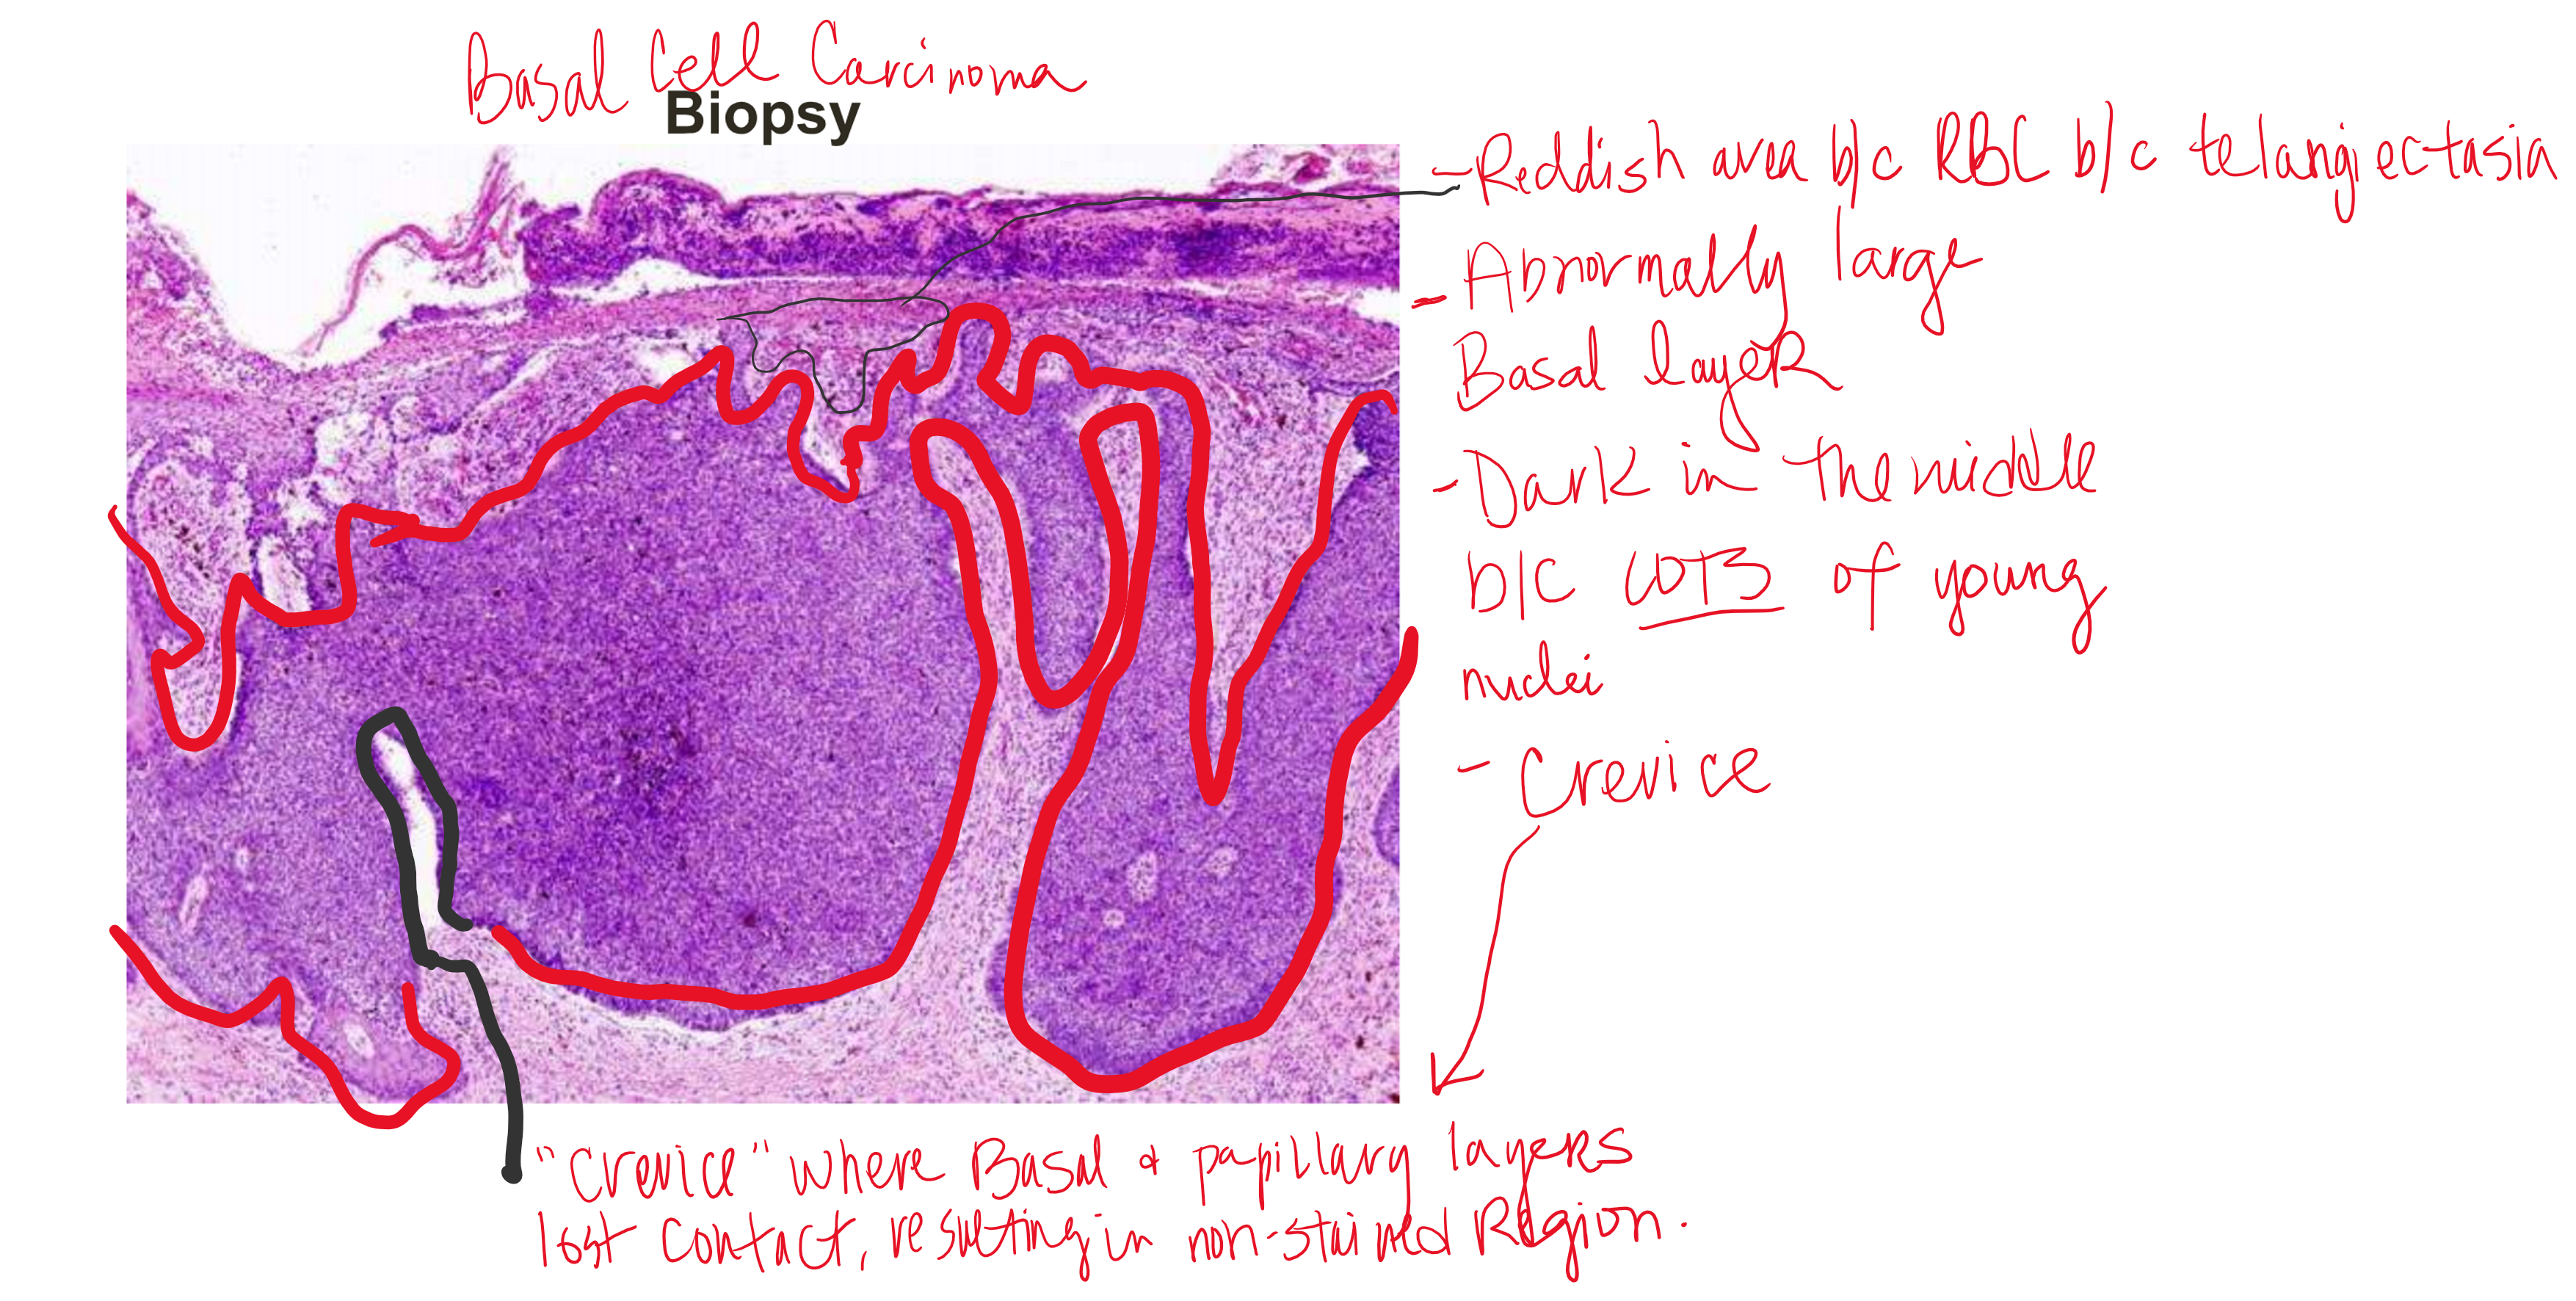 Basal Cell Carcinoma
Biopsy
- Reddish area b/c RBC b/c telangiectasia
- Abnormally large
Basal layer
- Dark in the middle
b/c LOTS of young
nuclei
- Crevice
"Crevice" where Basal & papillary layers
lost contact, resulting in non-stained Region.